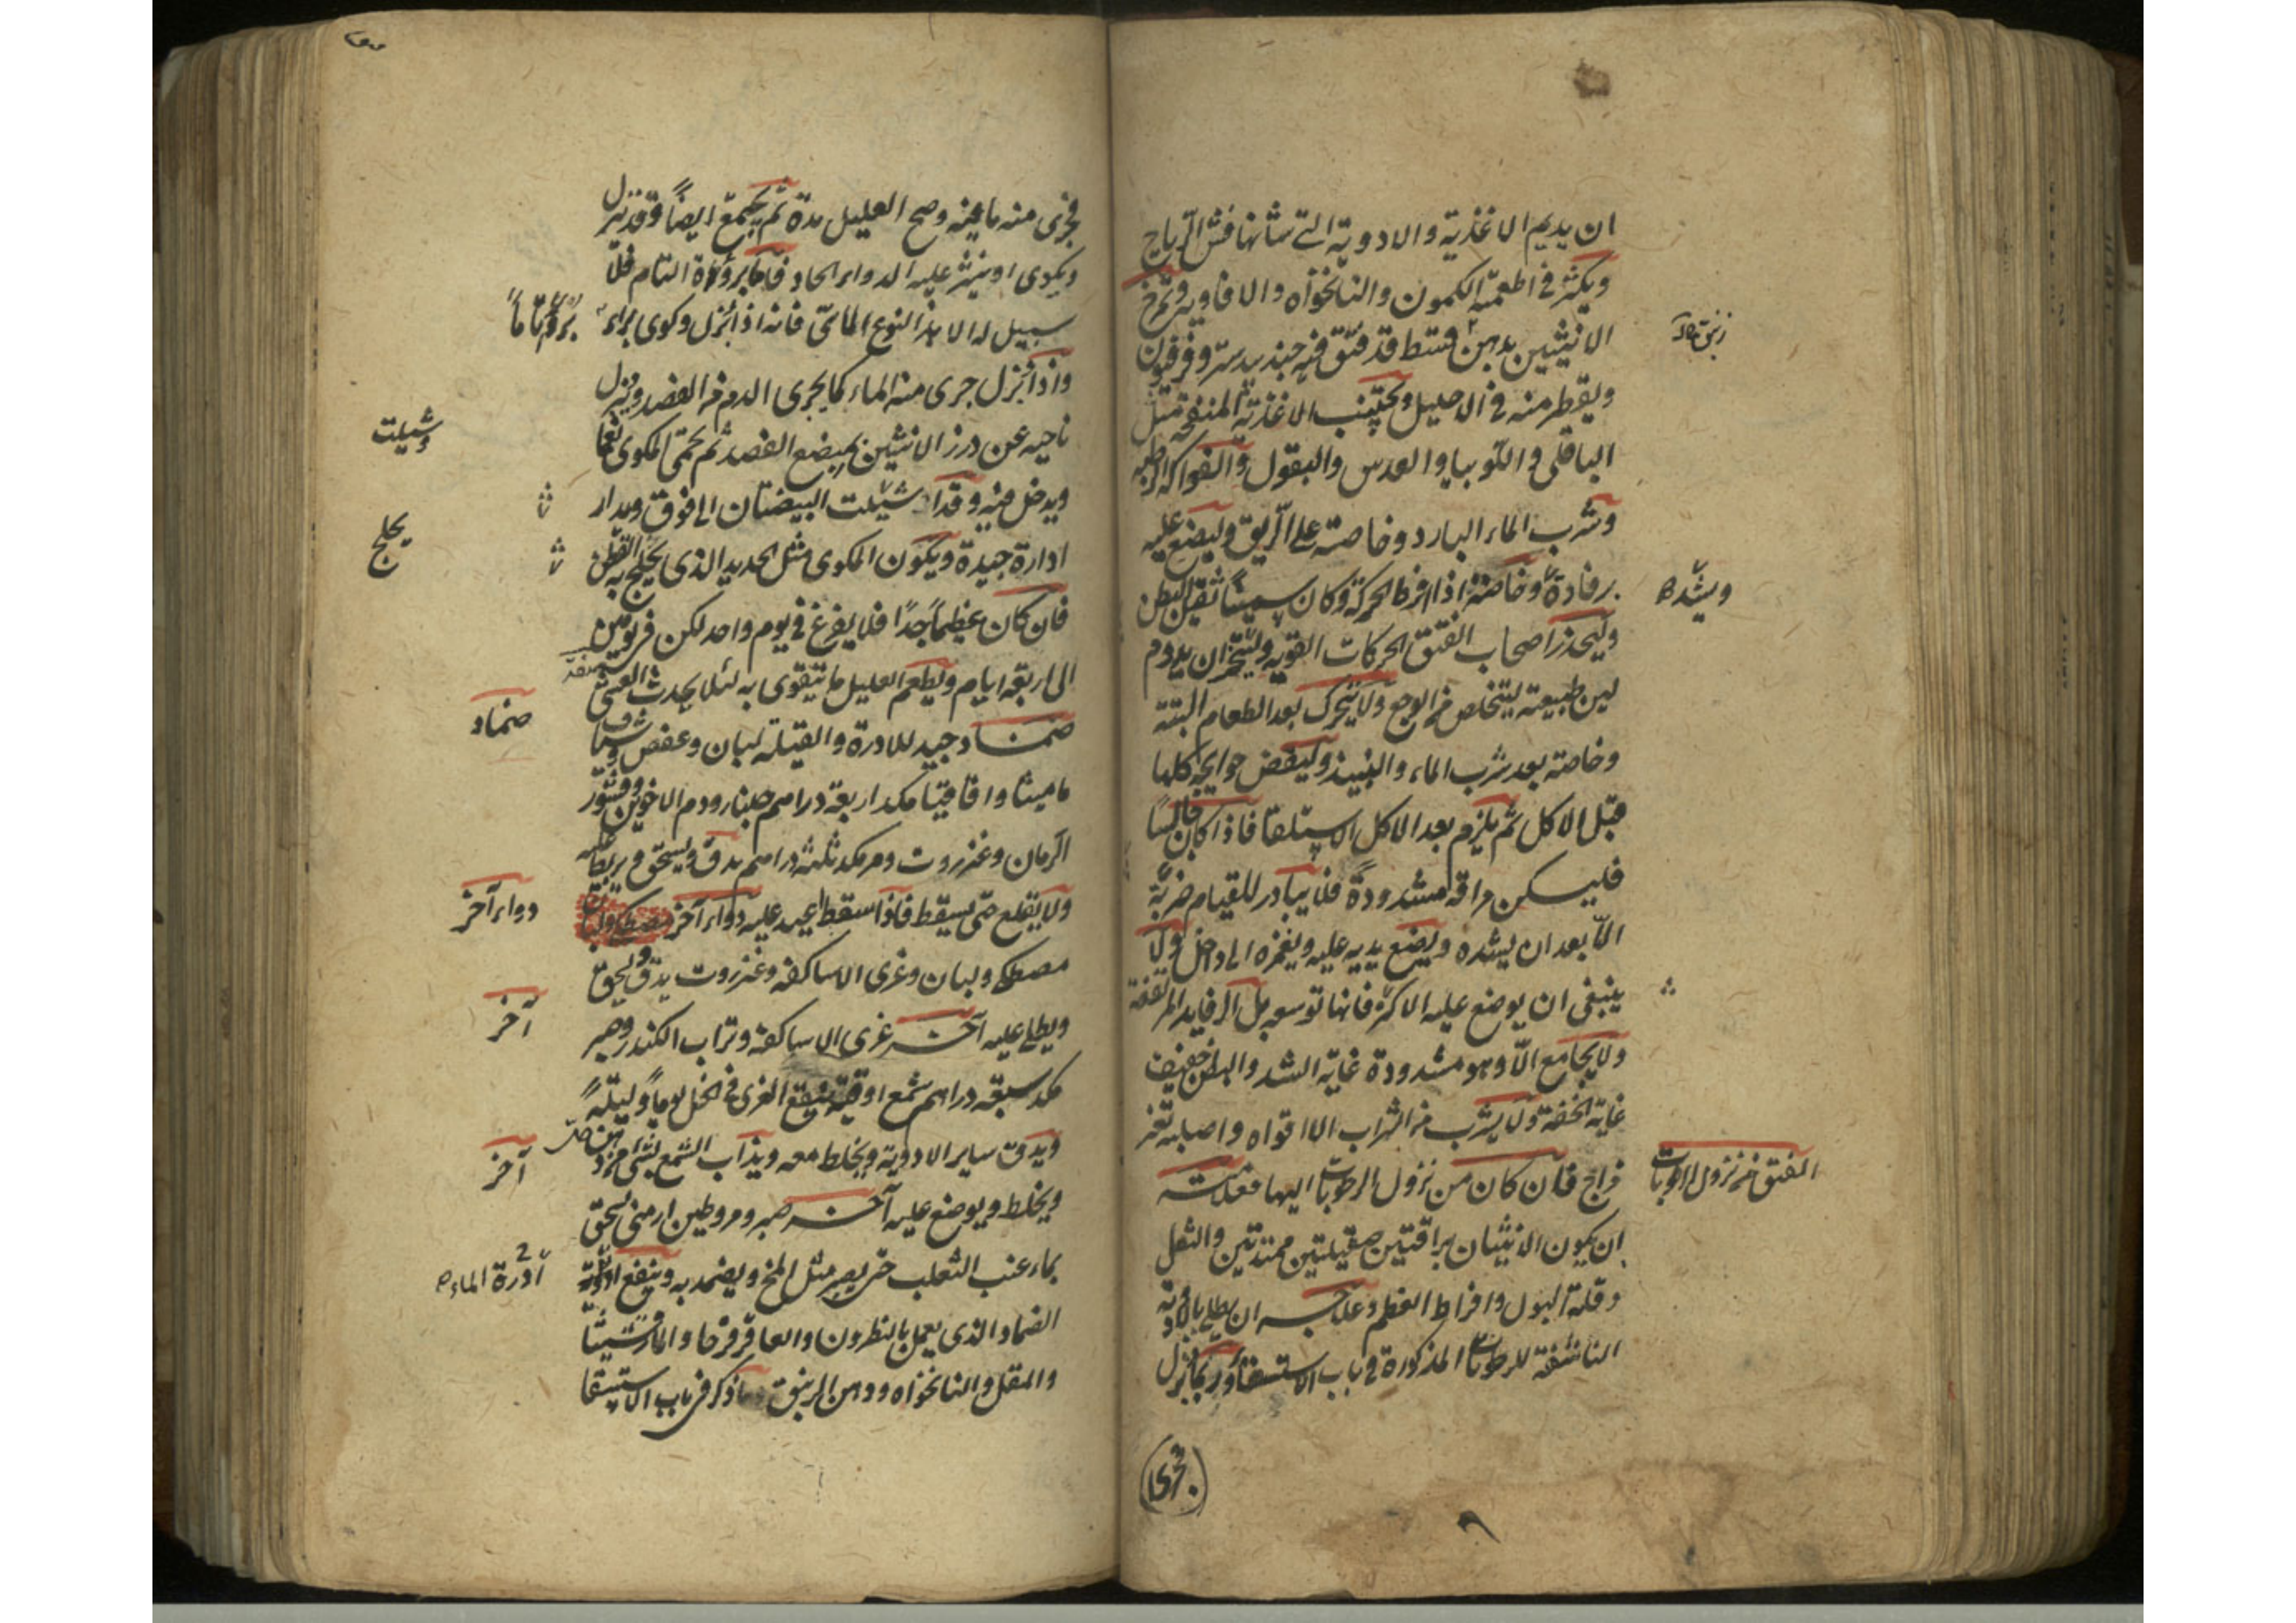 ان يديم الاغذية والادوية التي شانها فش الرياح
ويكثر في اطعمته الكمون والنانخواه والافاويه وتمرخ
الانثيين بدهن قسط قد فتق فيه جندبيدستر وفرفيون
ويقطر منه في الاحليل ويجتنب الاغذية المنفخة مثل
الباقلى واللوبيا والعدس والبقول والفواكه الرطبة
وشرب الماء البارد وخاصة على الريق وليضع عليه
رفادة وخاصة اذا افرط الحركة وكان سمينا ثقيل البطن
وليحذر اصحاب الفتق الحركات القوية وليتحر ان يدوم
لين طبيعته ليتخلص من الوجع ولا يتحرك بعد الطعام البتة
وخاصة بعد شرب الماء والنبيذ وليقض حوايجه كلها
قبل الاكل ثم يلزم بعد الاكل الاستلقا فاذا كان جالسا
فليسكن مراقه مشدودة فلا يبادر للقيام ضربة
الا بعد ان يشده ويضع يديه عليه ويغمزه الى داخل ولا
ينبغي ان يوضع عليه الاكرة فانها توسعه بل الرفايد المرتفعة
ولا يجامع الا وهو مشدودة غاية الشد والبطن خفيف
غاية الخفة ولا يشرب من الشراب الا اقواه واصلبه
فراج فان كان من نزول الرطوبات اليها فعلامته
ان يكون الانثيان براقتين صقيلتين ممتدتين والثقل
وقلة البول وافراط العظم وعلاجه ان يطلى بالادوية
الناشفة للرطوبات المذكورة في باب الاستسقا وربما بزل
فجرى
ويشده
الفتق من نزول الرطوبات
فجرى منه مائية وصح العليل مدة ثم يجتمع ايضا وقد يبزل
ويكوى او ينثر عليه الدواء الحاد فاما برؤه التام فلا
سبيل له الا هذا النوع المائي فانه اذا بزل وكوى برا
واذا بزل جرى منه الماء كما يجرى الدم من الفصد ويبزل
ناحيه عن درز الانثيين بمبضع الفصد ثم يحمى المكوى نعما
ويدخل فيه وقد شيلت البيضتان الى فوق ويدار
ادارة جيدة ويكون المكوى مثل الحديد الذى يحلج به القطن
فان كان عظيما جدا فلا يفرغ في يوم واحد لكن في يومين
الى اربعة ايام ويطعم العليل ما يتقوى به لئلا يحدث الغشي
ضماد جيد للادرة والقيلة لبان وعفص وشياف
ماميثا واقاقيا مكد اربعة دراهم جلنار ودم الاخوين وقشور
الرمان وعنزروت ومر مكد ثلثة دراهم يدق ويسحق ويربط عليه
ولا يقلع حتى يسقط فاذا سقط اعيد عليه دواء آخر
مصطكى ولبان وغرى الاساكفة وعنزروت يدق ويسحق
ويطلى عليه آخر غرى الاساكفة وتراب الكندر وصبر
مكد سبعة دراهم شمع اوقية ينقع الغرى في الخل يوما وليلة
ويدق ساير الادوية ويخلط معه ويذاب الشمع بشى من دهن حل
ويخلط ويوضع عليه آخر صبر ومر وطين ارمنى يسحق
بماء عنب الثعلب حتى يصير مثل المخ ويضمد به وينفع
الضماد الذى يعمل بالنطرون والعاقرقرحا والمارقشيثا
والمقل والنانخواه ودهن الزنبق ما ذكر في باب الاستسقا
برؤا تاما
وشيلت
يحلج
ضماد
دواء آخر
آخر
آخر
أدرة الماء